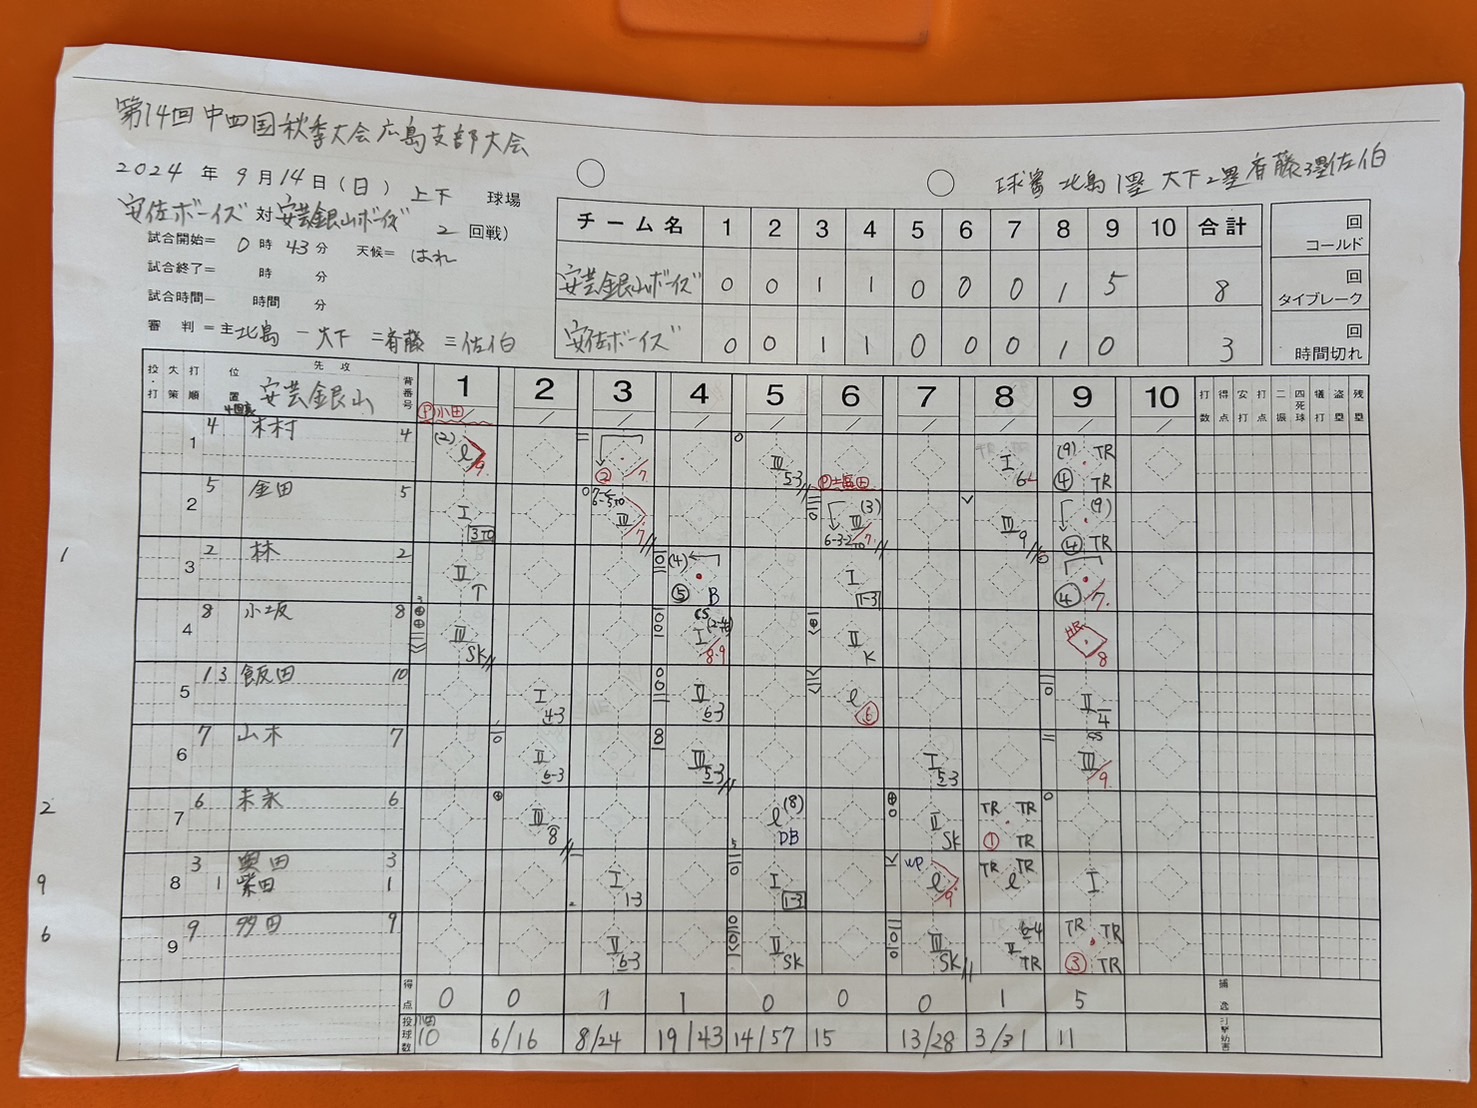 第14回中四国秋季大会広島支部大会
2024年9月14日(日) 上下 球場
球審 北島 1塁 大下 2塁 斉藤 3塁 佐伯
安佐ボーイズ 対 安芸銀山ボーイズ 2回戦)
試合開始= 0時43分 天候= はれ
試合終了= 時 分
試合時間− 時間 分
審判=主 北島 一大下 二斉藤 三佐伯
チーム名 1 2 3 4 5 6 7 8 9 10 合計
安芸銀山ボーイズ 0 0 1 1 0 0 0 1 5 8
安佐ボーイズ 0 0 1 1 0 0 0 1 0 3
回コールド
回タイブレーク
回時間切れ
投・打 失策 打順 位置 先攻 安芸銀山 背番号 1 2 3 4 5 6 7 8 9 10 打数 得点 安打 打点 二振 四死球 犠打 盗塁 残塁
P 小田
1 4 木村 4 (2) l 9 ② 7 III 5-3 I 6 (9) TR ④ TR
2 5 金田 5 I 3TO III 7 III (3) 6-3-2 TO 7 III 9 (9) ④ TR
1 3 2 林 2 II (4) ⑤ B I 1-3 ④ 7
4 8 小坂 8 III SK CS I 8.9 II K HR 8
5 1 3 飯田 10 I 4-3 II 6-3 l ⑥ II 4
6 7 山木 7 II 6-3 III 5-3 I 5-3 CS III 9
2 7 6 末永 6 III 8 l (8) DB II SK TR TR ① TR
9 8 3 奥田 3 I 1-3 I 1-3 WP l 9 TR l TR I
1 柴田 1
6 9 9 多田 9 II 6-3 II SK III SK 6-4 II TR TR TR ③ TR
得点 0 0 1 1 0 0 0 1 5 捕逸
投球数 小田 10 6/16 8/24 19/43 14/57 15 13/28 3/31 11 打撃妨害